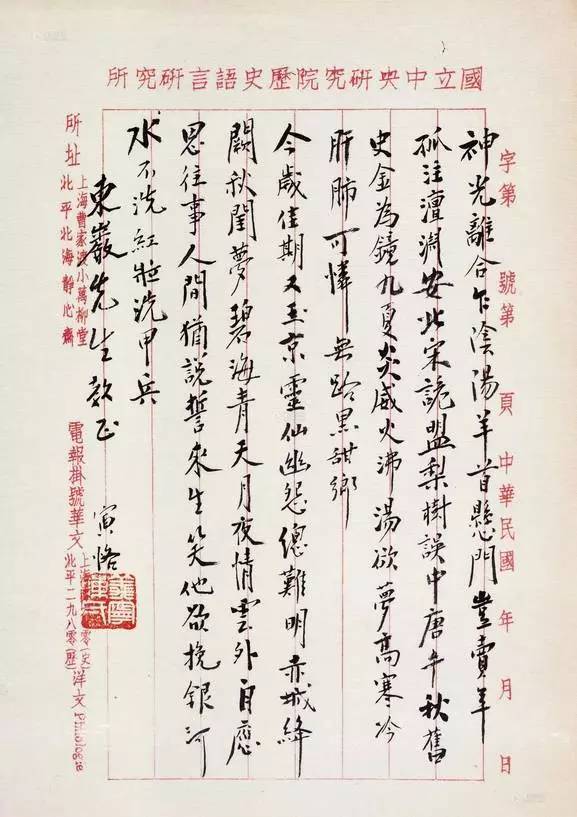 國立中央研究院歷史語言研究所
字第 號第 頁 中華民國 年 月 日
神光離合乍陰陽羊首懸門豈賣羊
孤注澶淵安北宋詭盟梨樹誤中唐千秋舊
史金為鏡九夏炎威火沸湯欲夢高寒冷
肝肺可憐無路黑甜鄉
今歲佳期又玉京靈仙幽怨總難明赤城絳
闕秋閨夢碧海青天月夜情雲外自應
思往事人間猶說誓來生笑他欲挽銀河
水不洗紅妝洗甲兵
東巖先生教正 寅恪
所址
上海曹家渡小萬柳堂
北平北海靜心齋
電報掛號華文
上海 零(史)
北平二九八零(歷)
洋文 Philologia